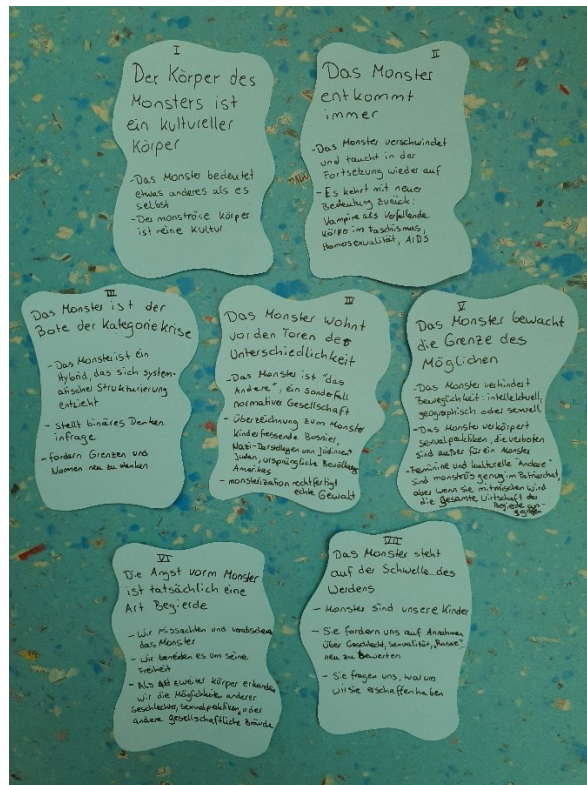 I
Der Körper des
Monsters ist
ein kultureller
Körper
- Das Monster bedeutet
etwas anderes als es
selbst
- Der monströse Körper
ist reine Kultur
II
Das Monster
entkommt
immer
- Das Monster verschwindet
und taucht in der
Fortsetzung wieder auf
- Es kehrt mit neuer
Bedeutung zurück:
Vampire als verfallende
Körper im Faschismus,
Homosexualität, AIDS
III
Das Monster ist der
Bote der Kategoriekrise
- Das Monster ist ein
Hybrid, das sich system-
atischer Strukturierung
entzieht
- stellt binäres Denken
infrage
- fordern Grenzen und
Normen neu zu denken
IV
Das Monster wohnt
vor den Toren der
Unterschiedlichkeit
- Das Monster ist "das
Andere", ein Sonderfall
normativer Gesellschaft
- Überzeichnung zum Monster
Kinderfressende Bosnier,
Nazi-Darstellungen von Jüdinnen*
Juden, ursprüngliche Bevölkerung
Amerikas
- monsterization rechtfertigt
echte Gewalt
V
Das Monster bewacht
die Grenze des
Möglichen
- Das Monster verhindert
Beweglichkeit: intellektuell,
geographisch oder sexuell
- Das Monster verkörpert
sexualpraktiken, die verboten
sind außer für ein Monster
- Feminine und kulturelle "Andere"
sind monströs genug im Patriarchat,
aber wenn sie mitmischen wird
die gesamte Wirtschaft der
Begierde an-
gegriffen
VI
Die Angst vorm Monster
ist tatsächlich eine
Art Begierde
- Wir missachten und
das Monster
- Wir beneiden es um seine
Freiheit
- Als Art zweiter Körper erkunden
wir die Möglichkeiten anderer
Geschlechter, sexualpraktiken, oder
andere gesellschaftliche Bräuche
VII
Das Monster steht
auf der Schwelle... des
Werdens
- Monster sind unsere Kinder
- Sie fordern uns auf Annahmen
über Geschlecht, sexualität, "Rasse"
neu zu Bewerten
- Sie fragen uns, warum
wir sie erschaffen haben